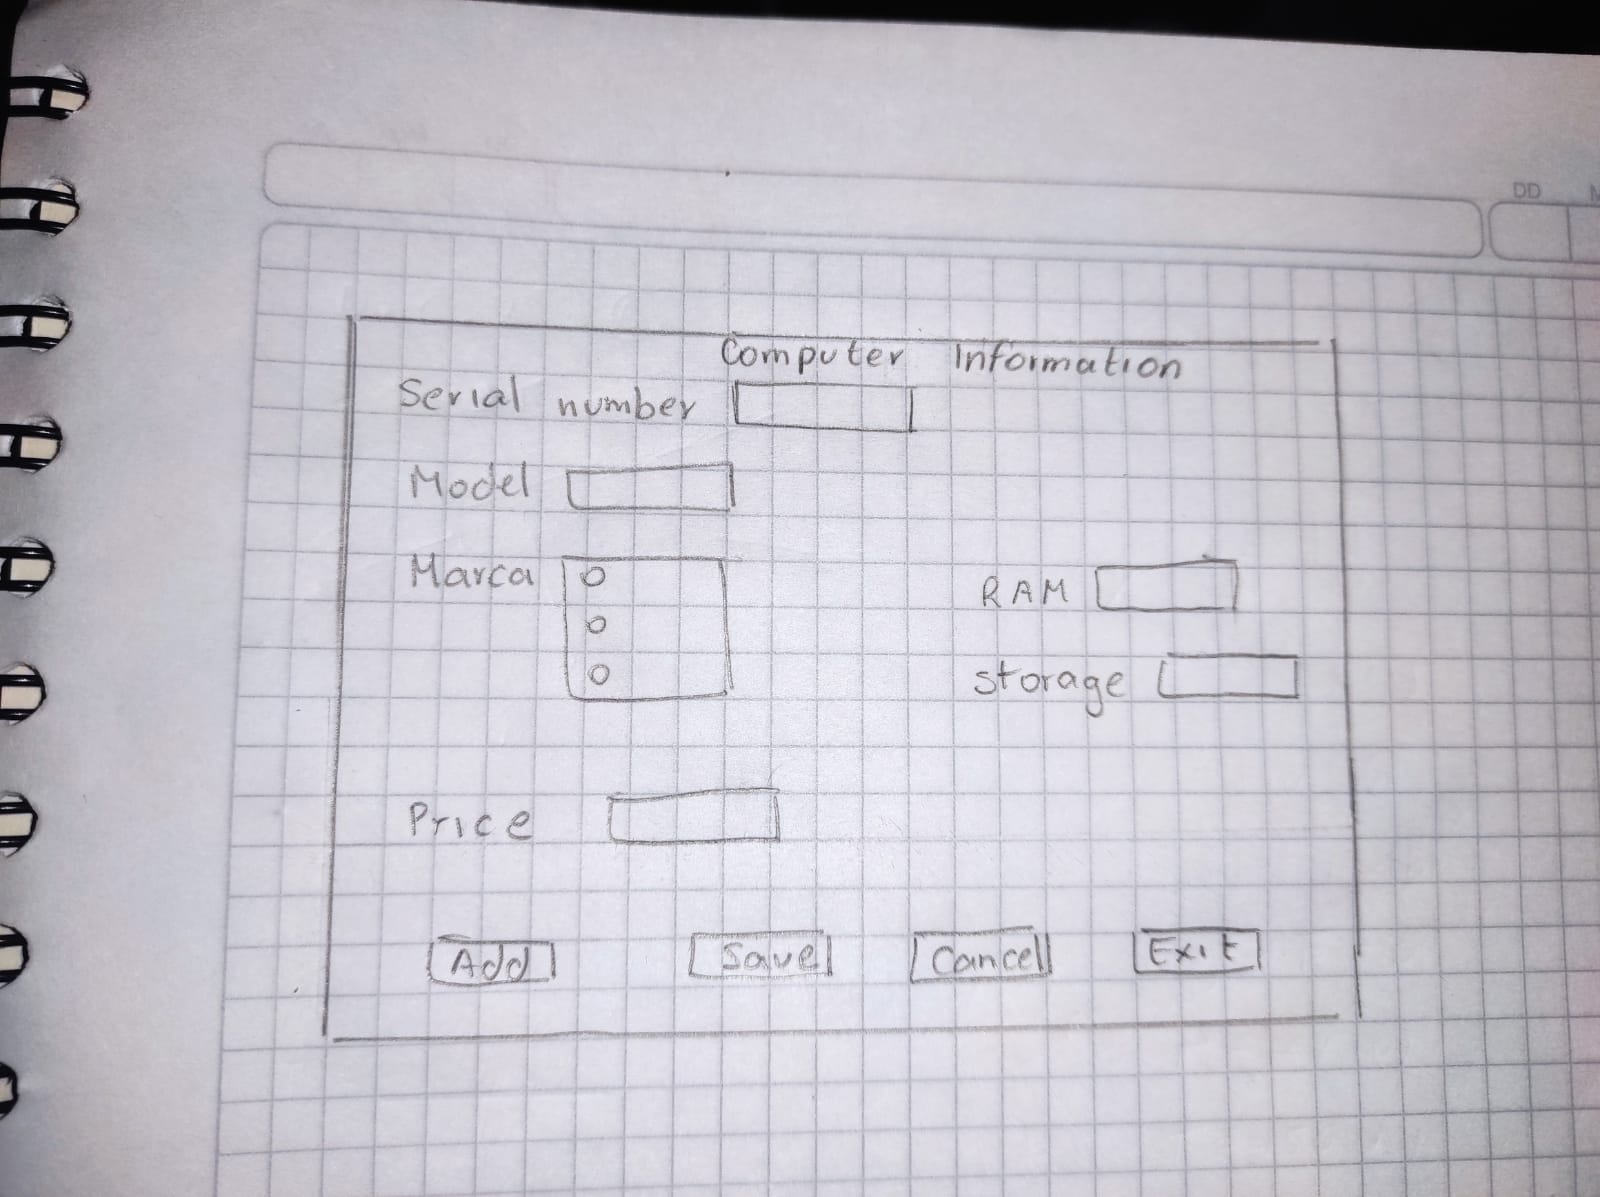 DD
Computer Information
Serial number
Model
Marca
RAM
storage
Price
Add Save Cancel Exit